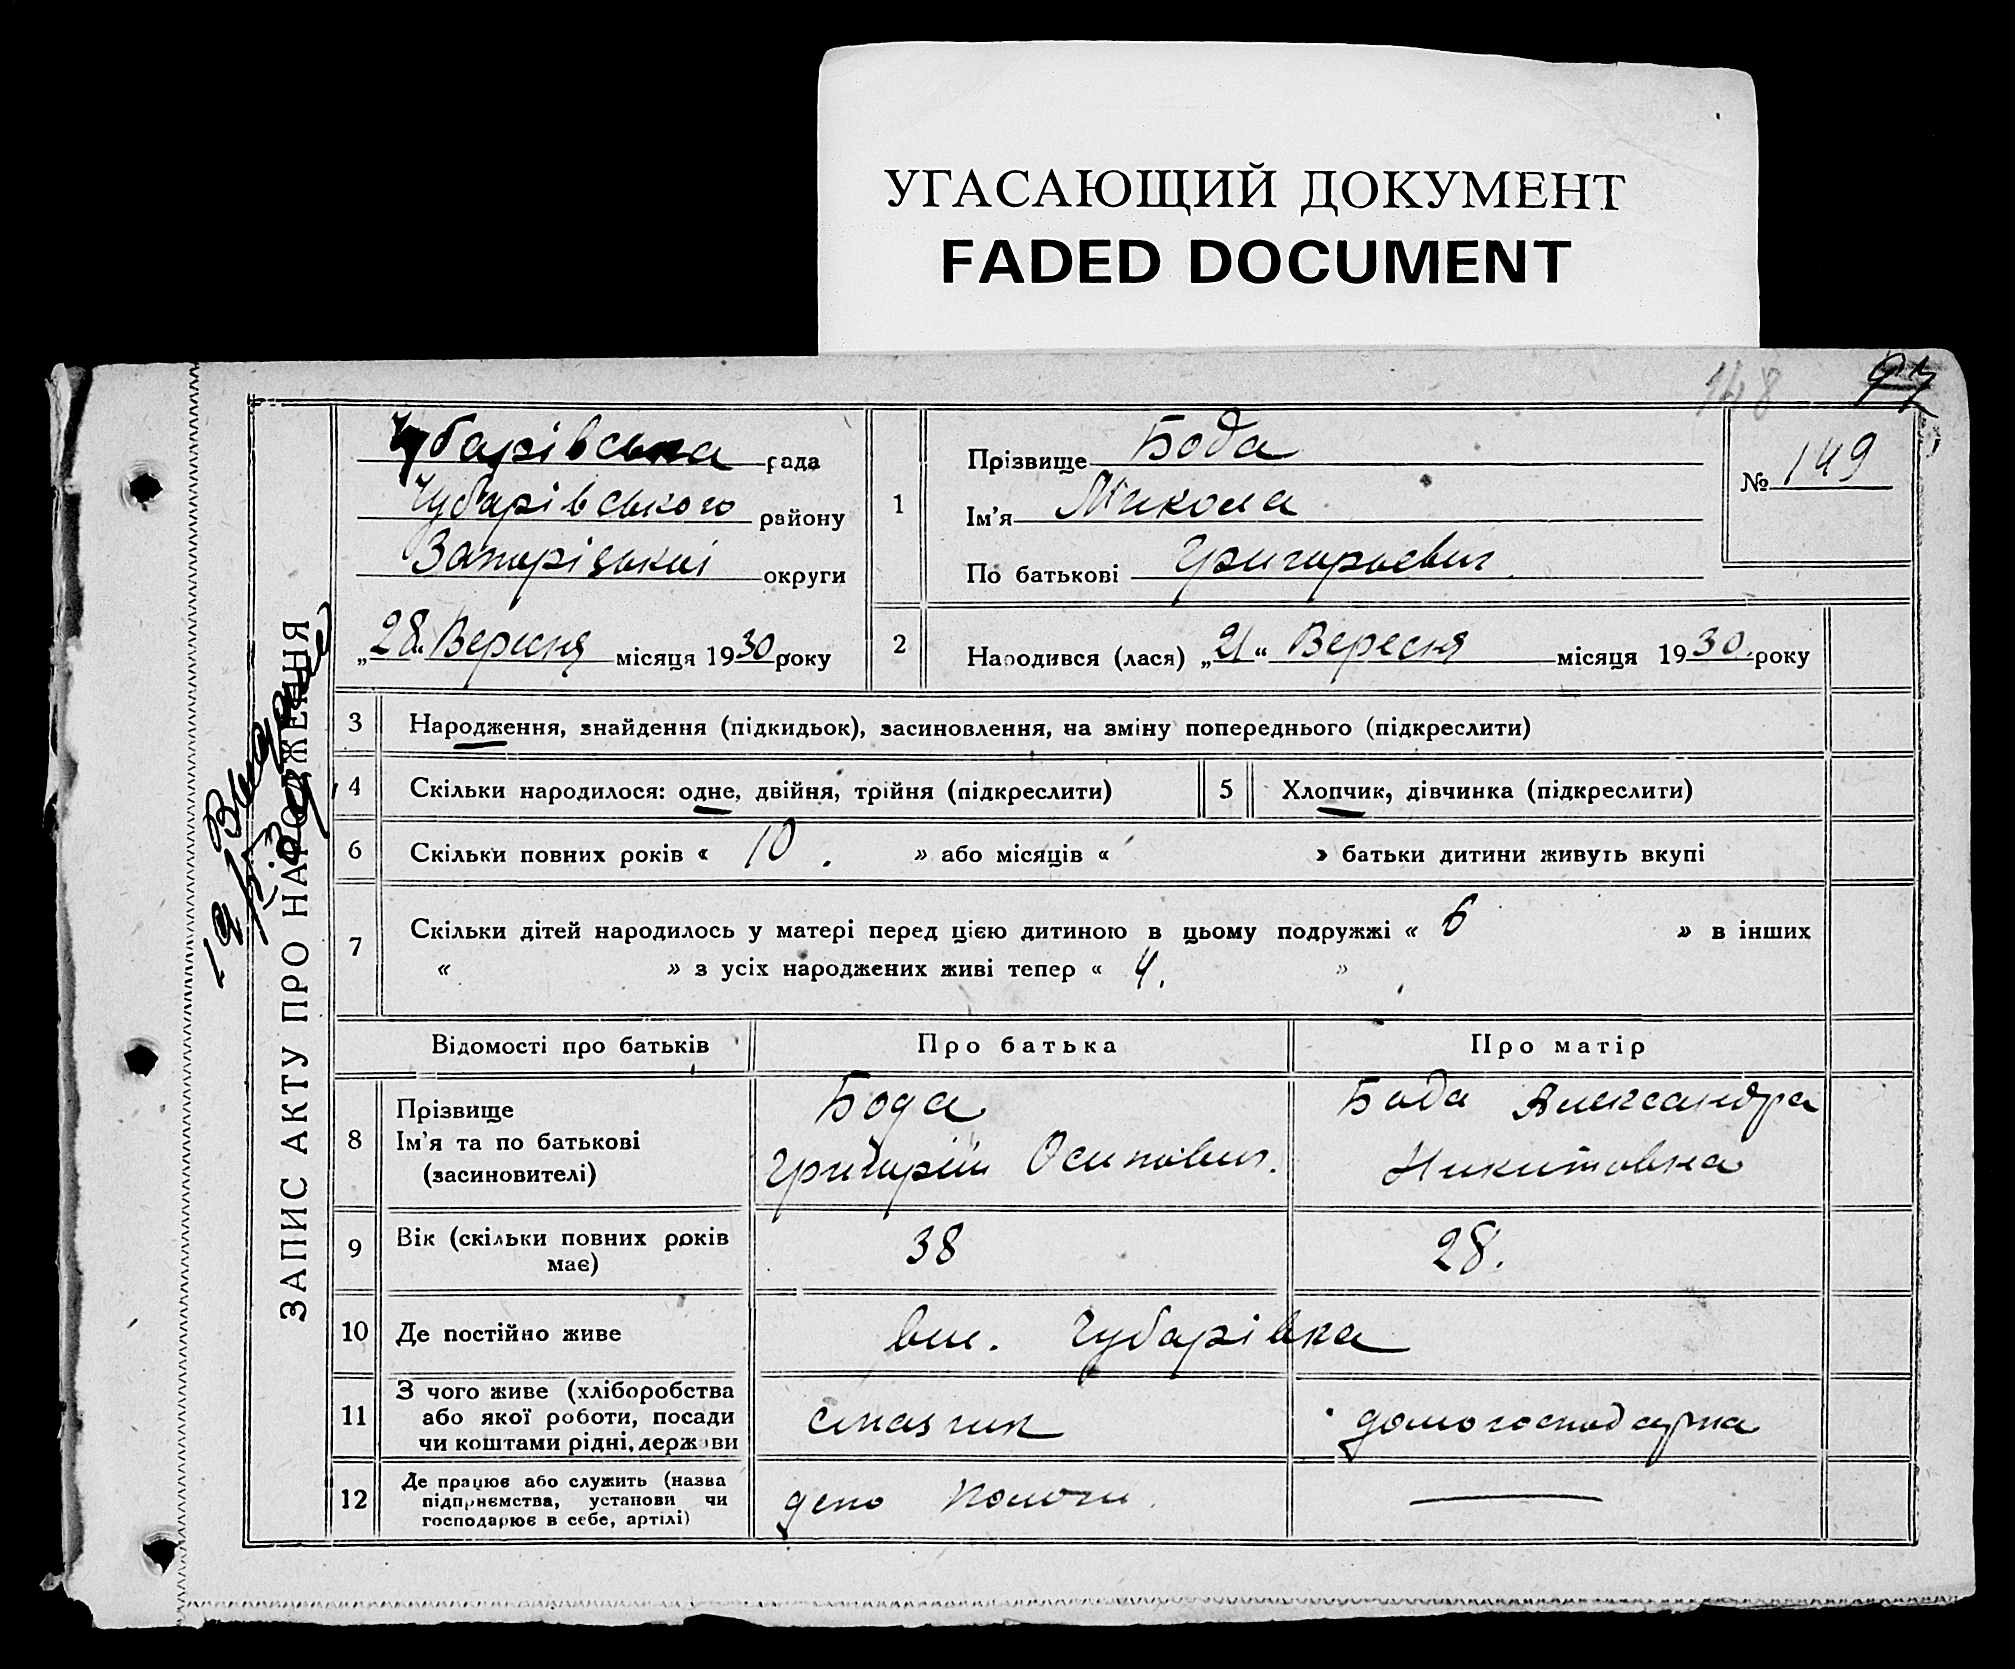 УГАСАЮЩИЙ ДОКУМЕНТ
FADED DOCUMENT
148
97
ЗАПИС АКТУ ПРО НАРОДЖЕННЯ
Чубарівська рада
Чубарівського району
Запоріцької округи
„28“ Вересня місяця 1930 року
1
Прізвище Бода
Ім'я Микола
По батькові Григорьевич
№ 149
2
Народився (лася) „21“ Вересня місяця 1930. року
3 Народження, знайдення (підкидьок), засиновлення, на зміну попереднього (підкреслити)
4 Скільки народилося: одне, двійня, трійня (підкреслити)
5 Хлопчик, дівчинка (підкреслити)
6 Скільки повних років « 10. » або місяців « » батьки дитини живуть вкупі
7 Скільки дітей народилось у матері перед цією дитиною в цьому подружжі « 6 » в інших
« » з усіх народжених живі тепер « 4. »
Відомості про батьків Про батька Про матір
8 Прізвище
Ім'я та по батькові
(засиновителі)
Бода
Григорій Осипович.
Бода Александра
Никитовна
9 Вік (скільки повних років
має)
38
28.
10 Де постійно живе
вил. Чубарівка
11 З чого живе (хліборобства
або якої роботи, посади
чи коштами рідні, держави
смазчик
домогосподарка
12 Де працює або служить (назва
підприємства, установи чи
господарює в себе, артілі)
депо Пологи.